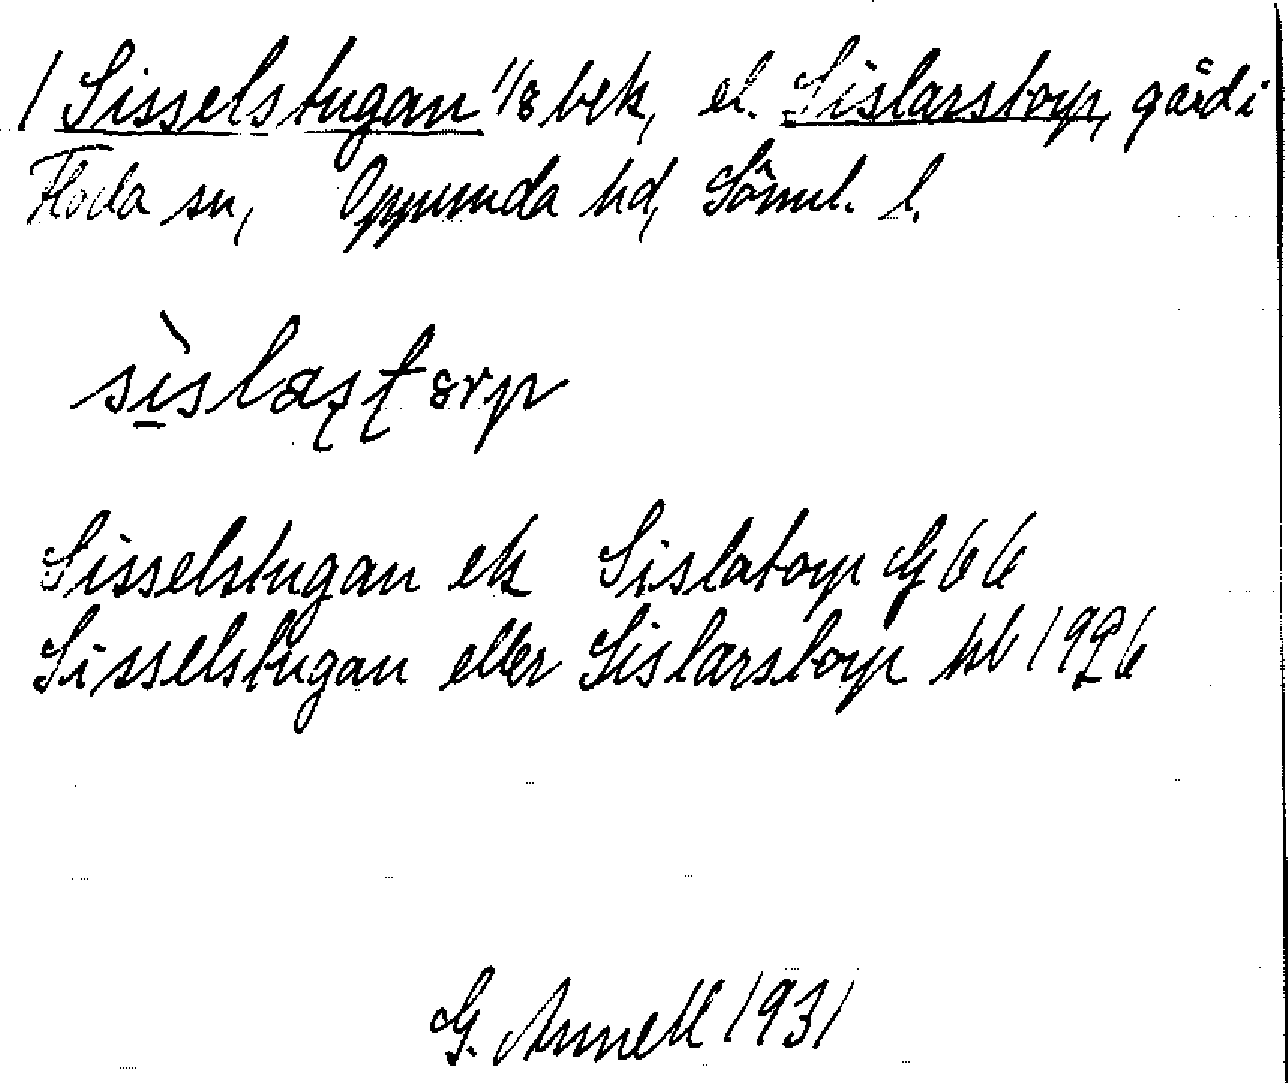 1 Sisselstugan 1/8 bek, el. Sislarstorp, gård i
Floda sn, Oppunda hd, Söml. l.
sìslaʂʈɵrp
Sisselstugan ek Sislatorp G 66
Sisselstugan eller Sislarstorp hb 1926
G. Annell 1931